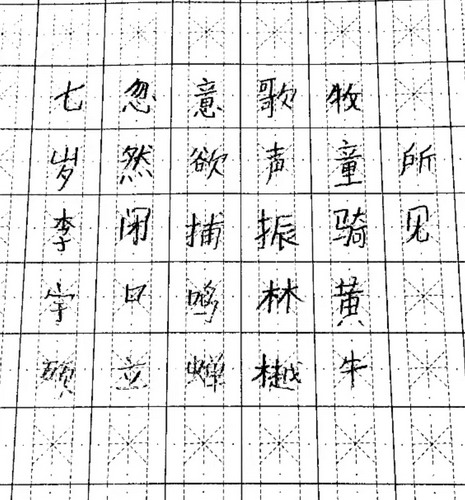 所见
牧童骑黄牛
歌声振林樾
意欲捕鸣蝉
忽然闭口立
七岁李宇硕